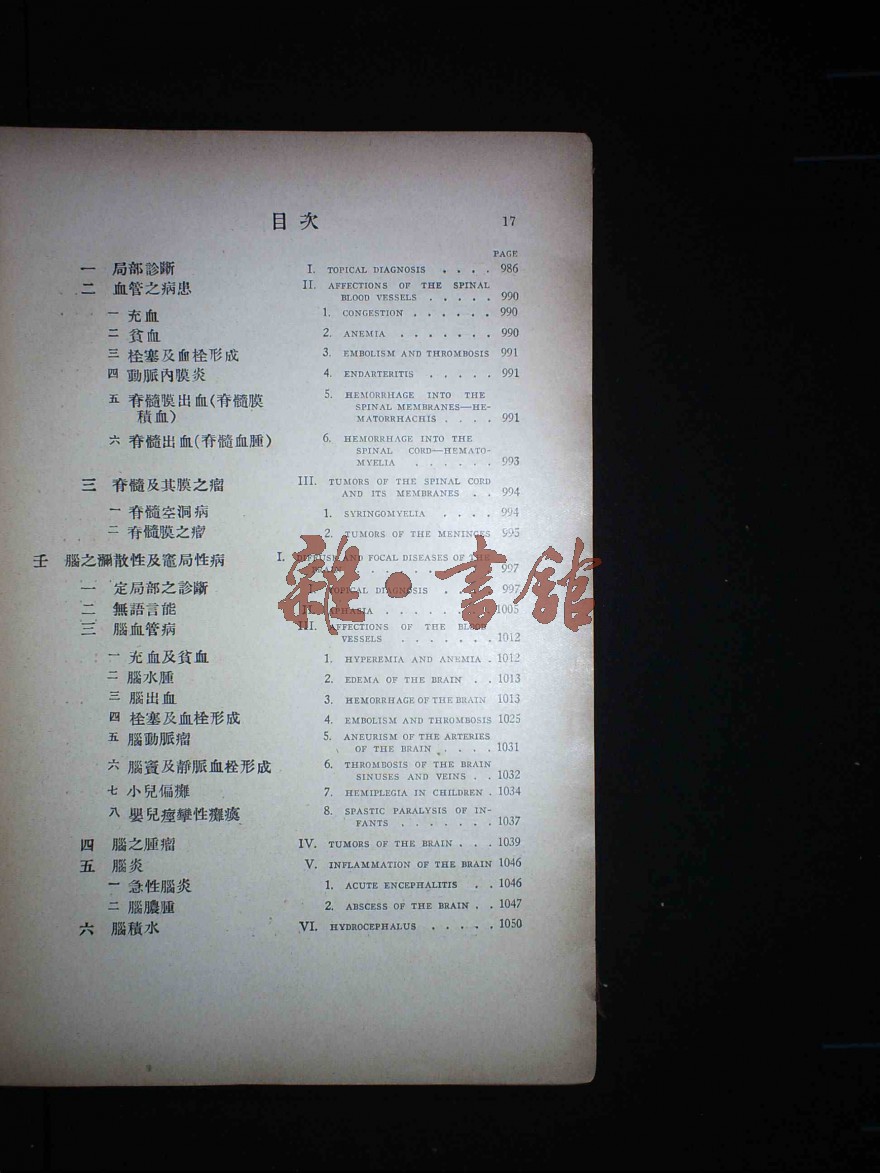 目次 17
PAGE
一 局部診斷 I. TOPICAL DIAGNOSIS . . . . 986
二 血管之病患 II. AFFECTIONS OF THE SPINAL
BLOOD VESSELS . . . . . 990
一 充血 1. CONGESTION . . . . . . 990
二 貧血 2. ANEMIA . . . . . . . 990
三 栓塞及血栓形成 3. EMBOLISM AND THROMBOSIS 991
四 動脈內膜炎 4. ENDARTERITIS . . . . . 991
五 脊髓膜出血(脊髓膜 5. HEMORRHAGE INTO THE
積血) SPINAL MEMBRANES—HE-
MATORRHACHIS . . . . 991
六 脊髓出血(脊髓血腫) 6. HEMORRHAGE INTO THE
SPINAL CORD—HEMATO-
MYELIA . . . . . . 993
三 脊髓及其膜之瘤 III. TUMORS OF THE SPINAL CORD
AND ITS MEMBRANES . . 994
一 脊髓空洞病 1. SYRINGOMYELIA . . . . 994
二 脊髓膜之瘤 2. TUMORS OF THE MENINGES 995
壬 腦之瀰散性及竈局性病 I. DIFFUSE AND FOCAL DISEASES OF THE
BRAIN . . . . . . . 997
一 定局部之診斷 I. TOPICAL DIAGNOSIS . . . 997
二 無語言能 II. APHASIA . . . . . . . 1005
三 腦血管病 III. AFFECTIONS OF THE BLOOD
VESSELS . . . . . . . 1012
一 充血及貧血 1. HYPEREMIA AND ANEMIA . 1012
二 腦水腫 2. EDEMA OF THE BRAIN . . 1013
三 腦出血 3. HEMORRHAGE OF THE BRAIN 1013
四 栓塞及血栓形成 4. EMBOLISM AND THROMBOSIS 1025
五 腦動脈瘤 5. ANEURISM OF THE ARTERIES
OF THE BRAIN . . . . 1031
六 腦竇及靜脈血栓形成 6. THROMBOSIS OF THE BRAIN
SINUSES AND VEINS . . 1032
七 小兒偏癱 7. HEMIPLEGIA IN CHILDREN . 1034
八 嬰兒痙攣性癱瘓 8. SPASTIC PARALYSIS OF IN-
FANTS . . . . . . . 1037
四 腦之腫瘤 IV. TUMORS OF THE BRAIN . . . 1039
五 腦炎 V. INFLAMMATION OF THE BRAIN 1046
一 急性腦炎 1. ACUTE ENCEPHALITIS . . 1046
二 腦膿腫 2. ABSCESS OF THE BRAIN . . 1047
六 腦積水 VI. HYDROCEPHALUS . . . . . 1050
雜·書館